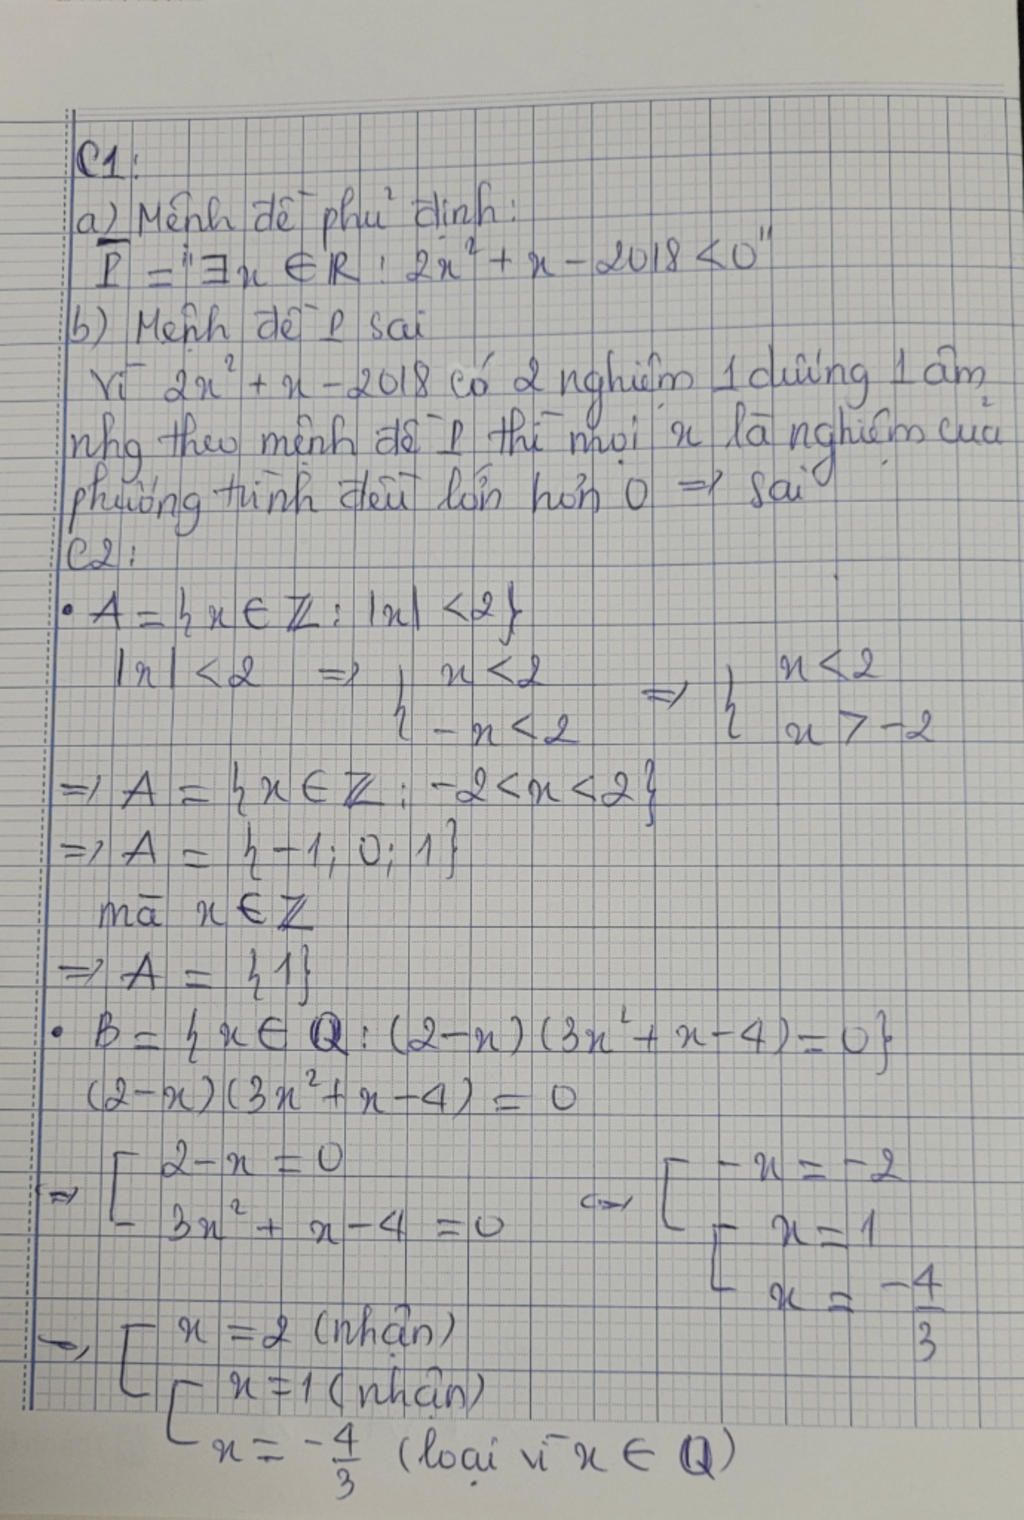 C1:
a) Mệnh đề phủ định:
P̅ = "∃x ∈ R : 2x² + x - 2018 < 0"
b) Mệnh đề P sai
Vì 2x² + x - 2018 có 2 nghiệm 1 dương 1 âm
nhg theo mệnh đề P thì mọi x là nghiệm của
phương trình đều lớn hơn 0 => sai
C2:
• A = {x ∈ Z : |x| < 2}
|x| < 2 => { x < 2 => { x < 2
- x < 2 x > -2
=> A = {x ∈ Z : -2 < x < 2}
=> A = {-1; 0; 1}
mà x ∈ Z
=> A = {1}
• B = {x ∈ Q : (2-x)(3x² + x - 4) = 0}
(2-x)(3x² + x - 4) = 0
=> [ 2 - x = 0 <=> [ - x = -2
3x² + x - 4 = 0 [ x = 1
x = -4/3
=> [ x = 2 (nhận)
[ x = 1 (nhận)
x = -4/3 (loại vì x ∈ Q)